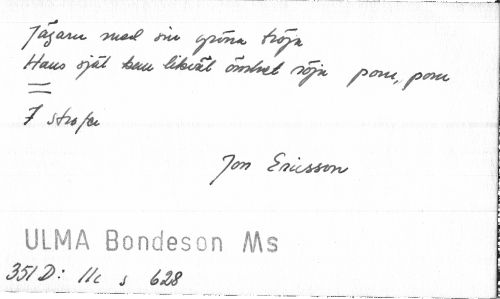 Jägarn med sin gröna tröja
Hans själ kan likväl ömhet röja pom, pom
=
7 strofer
Jon Ericsson
ULMA Bondeson Ms
351 D: 11c s 628